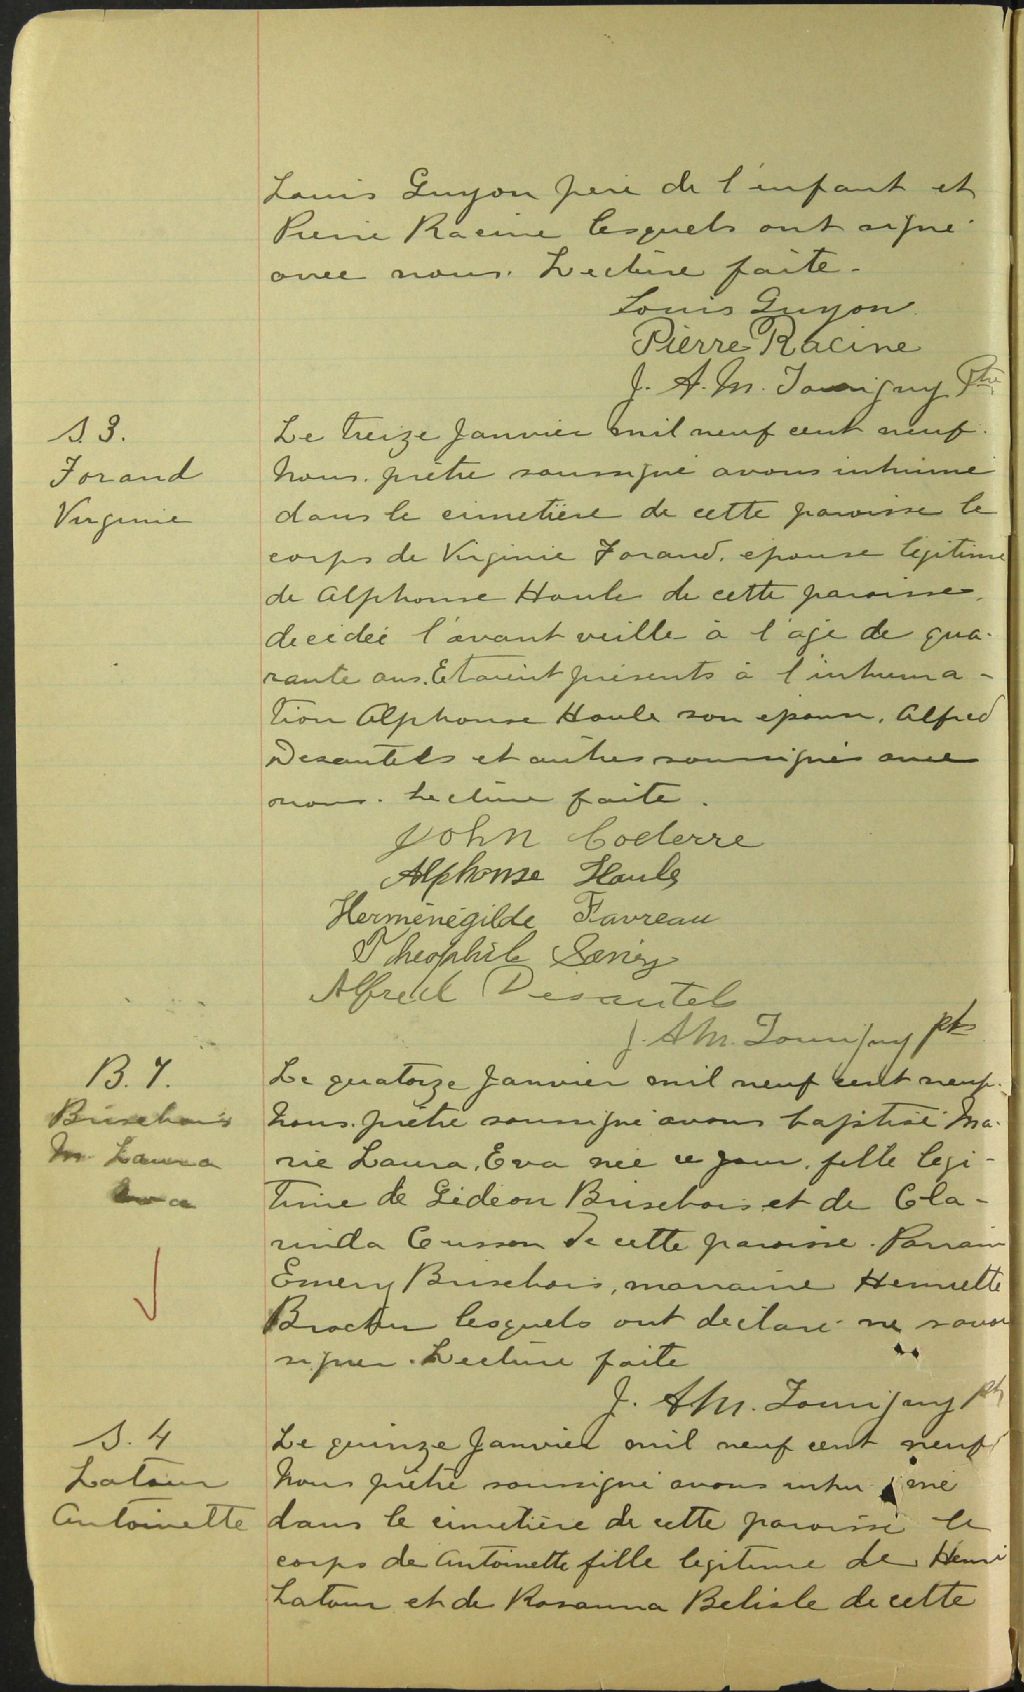 Louis Guyon père de l'enfant et
Pierre Racine lesquels ont signé
avec nous. Lecture faite.
Louis Guyon
Pierre Racine
J. A. M. Tourigny Ptre
S. 3.
Forand
Virginie
Le treize Janvier mil neuf cent neuf.
Nous. prêtre soussigné avons inhumé
dans le cimetière de cette paroisse le
corps de Virginie Forand. épouse légitime
de Alphonse Houle de cette paroisse,
decédée l'avant veille à l'age de qua-
rante ans. Etaient présents à l'inhuma-
tion Alphonse Houle son époux, Alfred
Desautels et autres soussignés avec
nous. Lecture faite.
John Coderre
Alphonse Houle
Herménégilde Favreau
Theophile
Alfred Desautels
J. A M. Tourigny ptr
B. 7.
Brisebois
M. Laura
Eva
Le quatorze Janvier mil neuf cent neuf.
Nous. prêtre soussigné avons baptisé Ma-
rie Laura, Eva née ce jour, fille légi-
time de Gédéon Brisebois et de Cla-
rinda Cusson de cette paroisse. Parrain
Emery Brisebois, marraine Henriette
lesquels ont déclaré ne savoir
signer. Lecture faite
J. A M. Tourigny ptr
S. 4
Latour
Antoinette
Le quinze Janvier mil neuf cent neuf
Nous prêtre soussigné avons inhumé
dans le cimetière de cette paroisse le
corps de Antoinette fille legitime de Henri
Latour et de Rosanna Belisle de cette